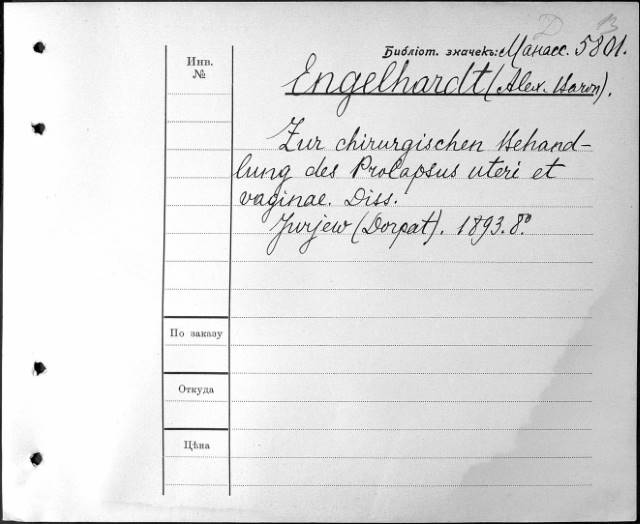 D B
Библіот. значекъ: Манасс. 5801.
Инв.
№
Engelhardt (Alex. Baron).
Zur chirurgischen Behand-
lung des Prolapsus uteri et
vaginae. Diss.
Jurjew (Dorpat). 1893. 8º
По заказу
Откуда
Цѣна